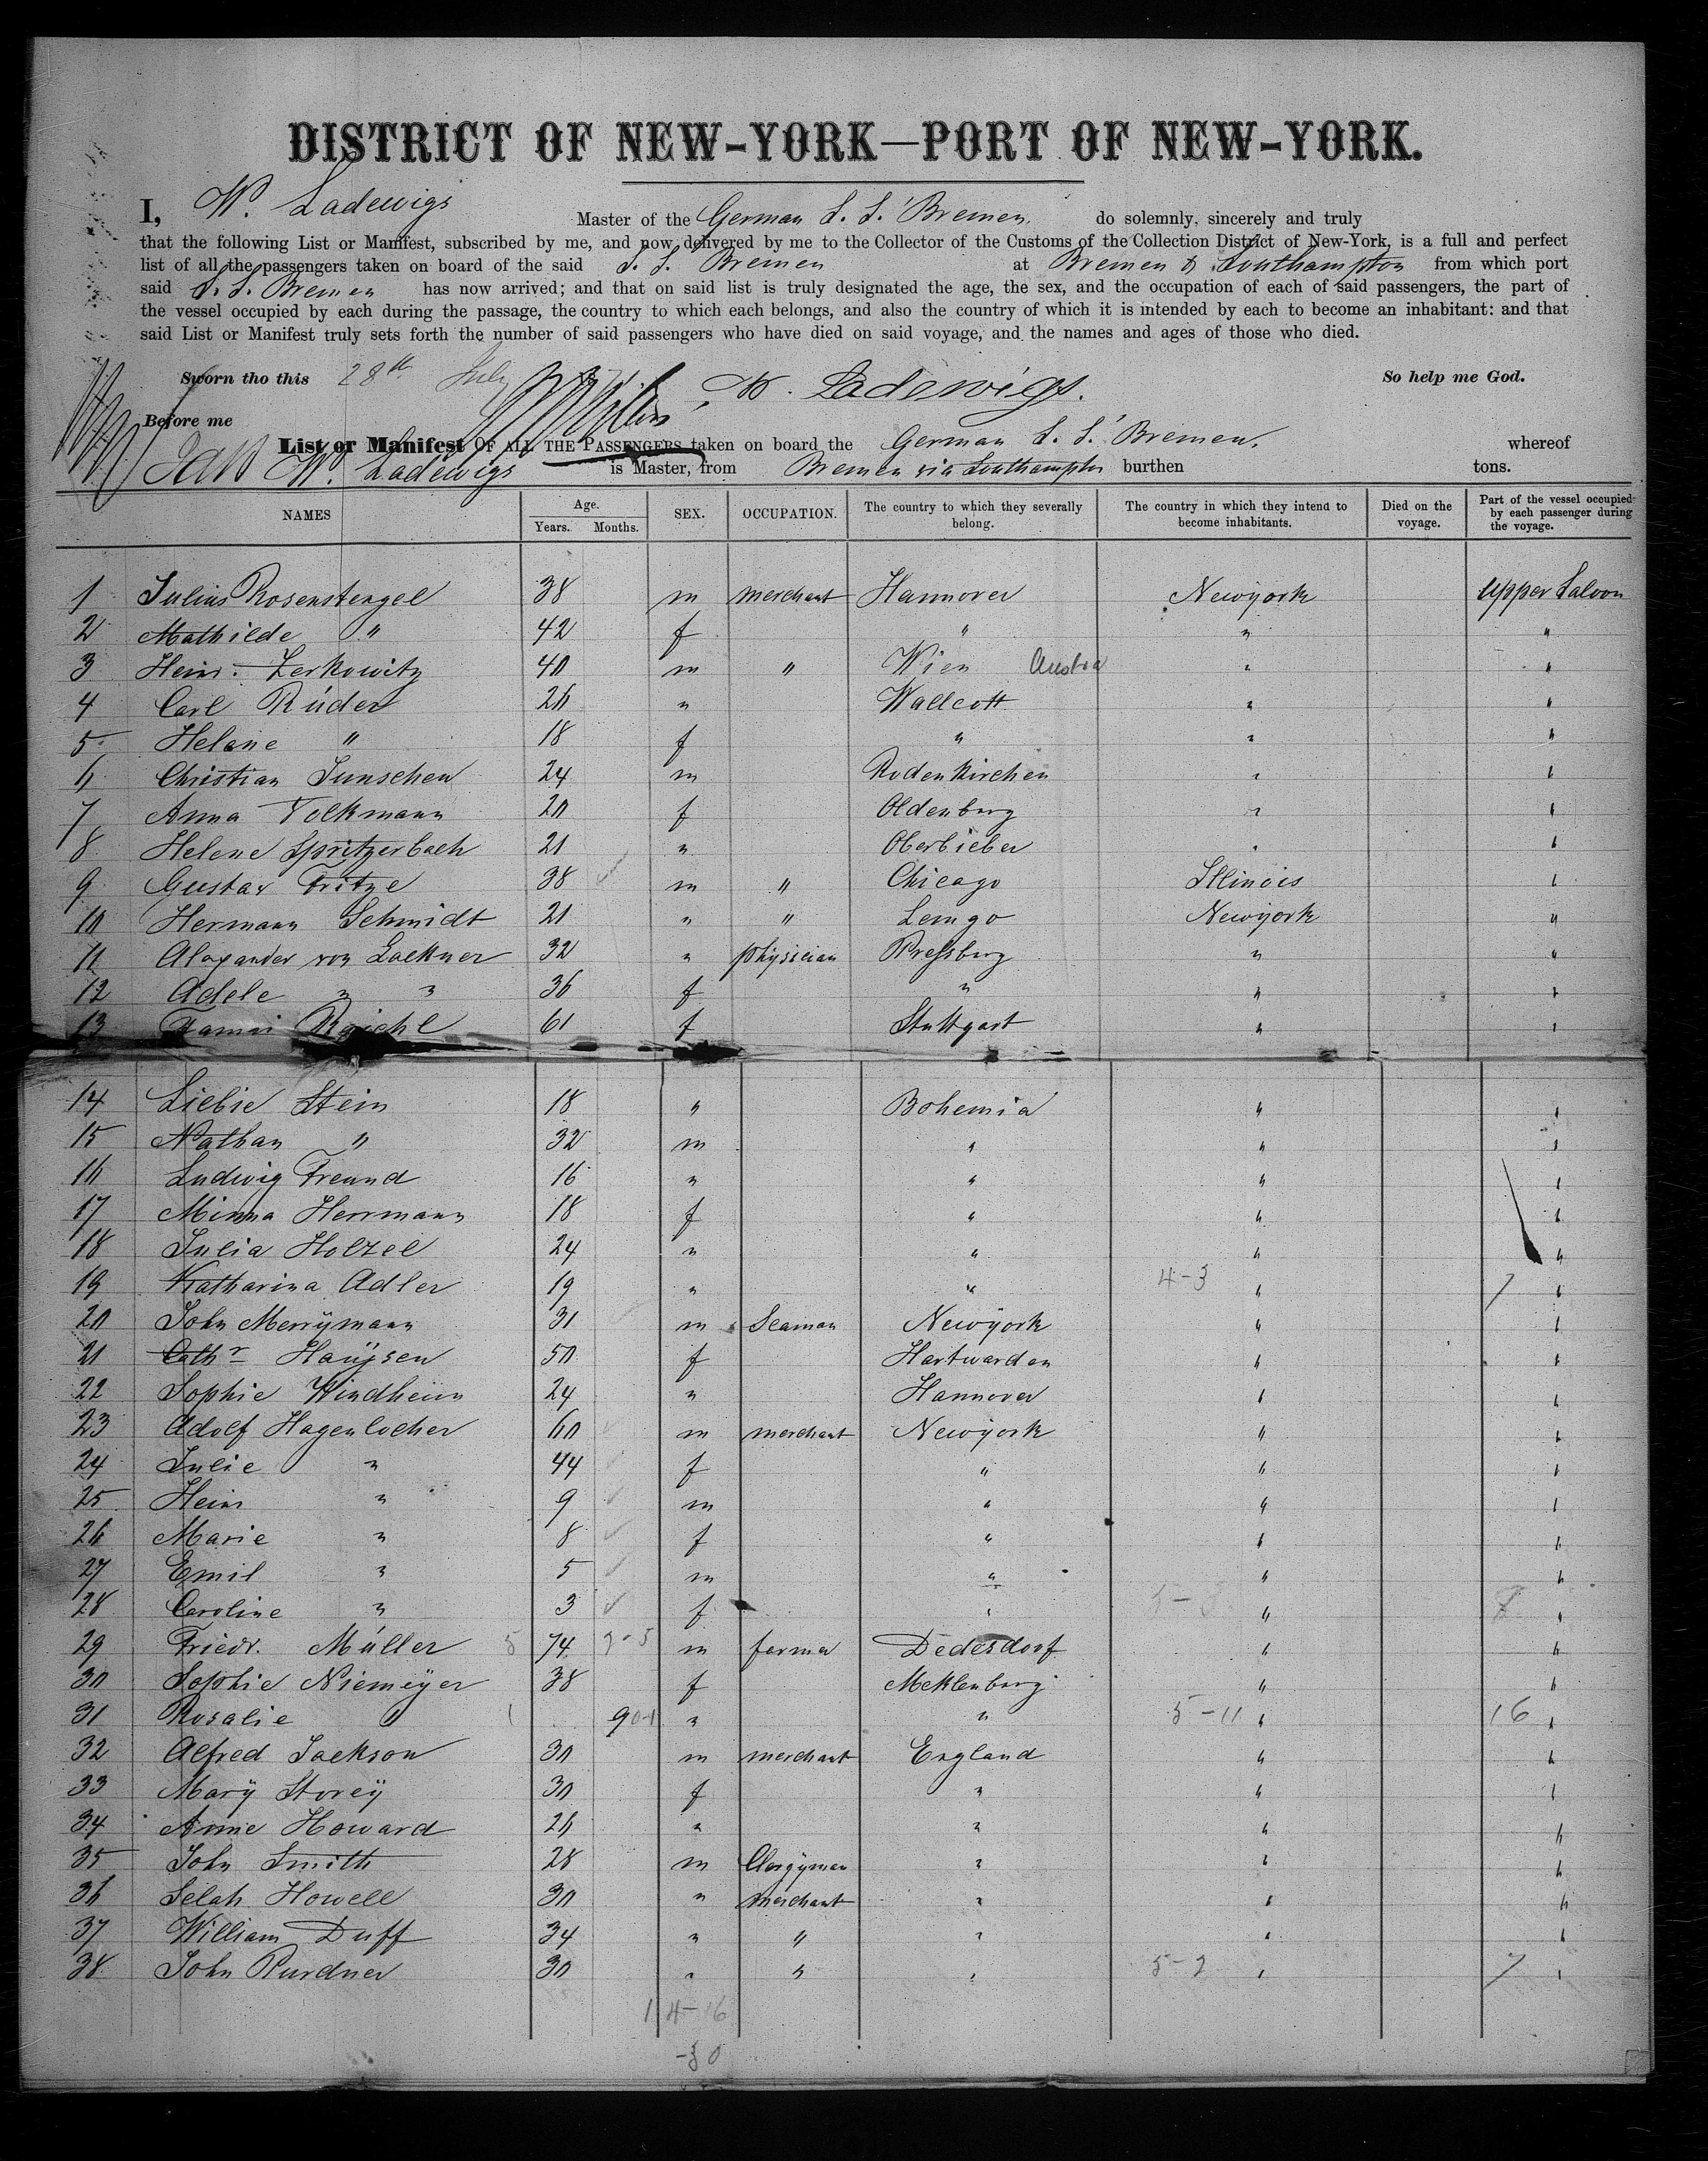 DISTRICT OF NEW-YORK—PORT OF NEW-YORK.
I, W. Ladewigs Master of the German S. S. Bremen do solemnly, sincerely and truly
that the following List or Manifest, subscribed by me, and now delivered by me to the Collector of the Customs of the Collection District of New-York, is a full and perfect
list of all the passengers taken on board of the said S. S. Bremen at Bremen & Southampton from which port
said S. S. Bremen has now arrived; and that on said list is truly designated the age, the sex, and the occupation of each of said passengers, the part of
the vessel occupied by each during the passage, the country to which each belongs, and also the country of which it is intended by each to become an inhabitant: and that
said List or Manifest truly sets forth the number of said passengers who have died on said voyage, and the names and ages of those who died.
Sworn tho this 28th July W. Ladewigs. So help me God.
Before me
List or Manifest OF ALL THE PASSENGERS taken on board the German S. S. Bremen. whereof
W. Ladewigs is Master, from Bremen via Southampton burthen tons.
NAMES Age. Years. Months. SEX. OCCUPATION. The country to which they severally belong. The country in which they intend to become inhabitants. Died on the voyage. Part of the vessel occupied by each passenger during the voyage.
1 Julius Rosenstengel 38 m merchant Hannover Newyork Upper Saloon
2 Mathilde " 42 f " " "
3 Heinr. Zerkowitz 40 m " Wien Austria " "
4 Carl Rüder 26 " Wallcott " "
5 Helene " 18 f " " "
6 Christian Junschen 24 m Rodenkirchen " "
7 Anna Volkmann 20 f Oldenburg " "
8 Helene Spritzerbach 21 " Oberbieber " "
9 Gustav Fritze 38 m " Chicago Illinois "
10 Hermann Schmidt 21 " " Lemgo Newyork "
11 Alexander von Lackner 32 " physician Pressburg " "
12 Adele " " 36 f " " "
13 Raichl 61 f Stuttgart " "
14 Liebie Stein 18 " Bohemia " "
15 Nathan " 32 m " " "
16 Ludwig Freund 16 " " " "
17 Minna Herrmann 18 f " " "
18 Julia Holzel 24 " " " "
19 Katharina Adler 19 " " 4-3 " 7 "
20 John Merrymann 31 m Seaman Newyork " "
21 Cathr Haÿsen 50 f Hartwarden " "
22 Sophie Windheim 24 " Hannover " "
23 Adolf Hagenlocher 60 m merchant Newyork " "
24 Julie " 44 f " " "
25 Heinr " 9 m " " "
26 Marie " 8 f " " "
27 Emil " 5 m " " "
28 Caroline " 3 f " " "
29 Friedr. Müller 74 m farmer Dedesdorf " "
30 Sophie Niemeÿer 38 f Meklenburg " "
31 Rosalie " 9 " " 5-11 " 16 "
32 Alfred Jackson 30 m merchant England " "
33 Marÿ Storeÿ 30 f " " "
34 Annie Howard 26 " " " "
35 John Smith 28 m Clergÿman " " "
36 Selah Howell 30 " merchant " " "
37 William Duff 34 " " " " "
38 John Purdner 30 " " " 5-2 " 7 "
14-16